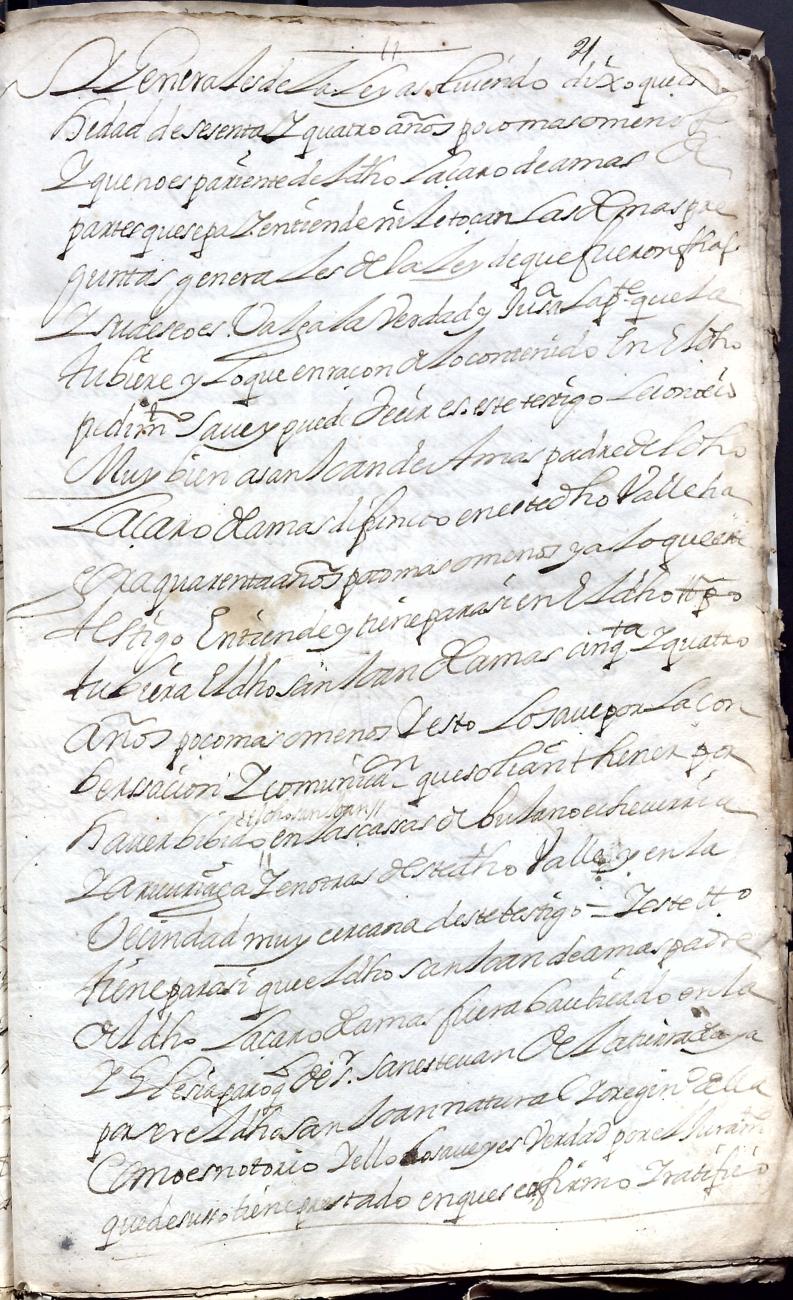 21
Generales de la Ley a soluiendo dixo que es
hedad de sesenta Y quatro años poco mas o menos
Y que no es pariente del dho Laçaro de amas
partes que sepa Y entiende ni le tocan Las demas pre
guntas generales de la Ley de que fueron fhas
Y su deseo es Valga la Verdad y Jusª La pte que la
tubiere y Lo que en racon de lo contenido En El dho
pedimto saue y puede decir es. este testigo conocio
Muy bien a san Joan de Amas padre del dho
Laçaro de amas difuncto en este dho Valle ha
bra quarenta años poco mas o menos ya lo que este
testigo Entiende y tiene para si en El dho tpo
tubiera El dho san Joan de amas cinqta Y quatro
años poco mas o menos Y esto Lo saue por La con
bersacion Y comunicaon que solian thener por
hauer bibido el dho san Joan en Las cassas de butano echeuerria
Y Y en otras deste dho Valle y en la
Vecindad muy cercana deste testigo = Y este tto
tiene para si que el dho san Joan de amas padre
del dho Laçaro de amas fuera bautiçado en la
Yglesia paroql de Sr. san esteuan De La tierra
por ser el dho san Joan natural Y oregino della
Como es notorio Y ello lo saue y es Verdad por el Juramto
que de suso tiene prestado en que se afirmo Y ratifico